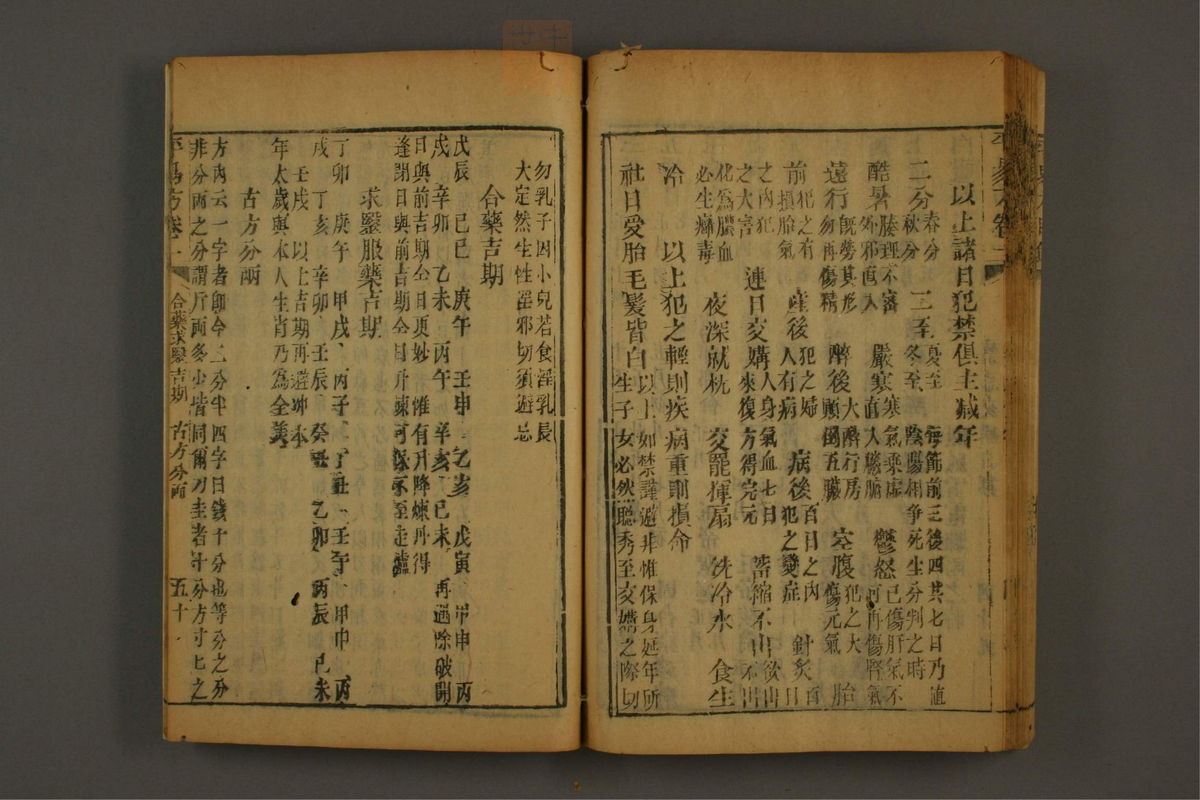 以上諸日犯禁俱主減年
二分春分秋分 二至夏至冬至 每節前三後四共七日乃值陰陽相爭死生分判之時
酷暑腠理不審外邪直入 嚴寒寒氣乘虛直入臟腑 鬱怒已傷肝氣不可再傷腎氣
遠行既勞其形勿再傷精 醉後大醉行房顛倒五臟 空腹犯之大傷元氣 胎
前犯之有損胎氣 產後犯之婦人有病 病後百日之內犯之變症 針灸百日
之內犯之大害 連日交媾人身氣血七日來復方得完元 蓄縮不出欲出不出
化為膿血必生癱毒 夜深就枕 交罷揮扇 洗冷水 食生
冷 以上犯之輕則疾病重則損命
社日受胎毛髮皆白生子女必然以上如禁謹避非惟保身延年所聰秀至交媾之際切
勿乳子因小兒若食淫乳長
大定然生性習邪切須避忌
合藥吉期
戊辰 己巳 庚午 壬申 乙亥 戊寅 甲申 丙
戌 辛卯 乙未 丙午 辛亥 己未 再遇除破開
日與前吉期仝日更妙 惟有升降煉丹得
逢閉日與前吉期仝日升煉可保永至走爐
求醫服藥吉期
丁卯 庚午 甲戌 丙子 丁丑 壬午 甲申 丙
戌 丁亥 辛卯 壬辰 癸 乙卯 丙辰 己未
壬戌 以上吉期再避 本
年太歲與本人生肖乃為全美
古方分兩
方內云一字者即今二分半四字曰錢十分也等分之分
非分兩之分謂斤兩多少皆同爾刀圭者十分方寸匕之
平易方卷一 合藥求醫吉期 古方分兩 五十